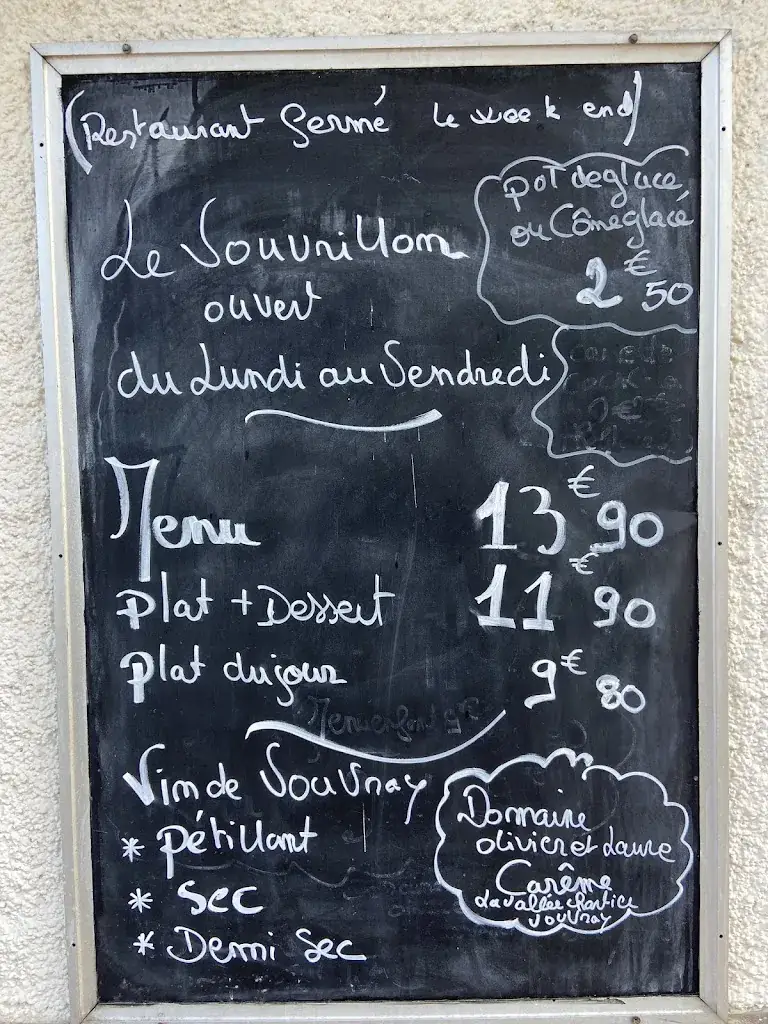 (Restaurant fermé le week end)
pot de glace
ou Cône glacé
2€50
Le Vouvrillon
ouvert
du Lundi au Vendredi
Menu 13€90
plat + Dessert 11€90
plat du jour 9€80
Vin de Vouvray
* pétillant
* sec
* Demi sec
Domaine
olivier et Laure
Carême
La vallée
Vouvray